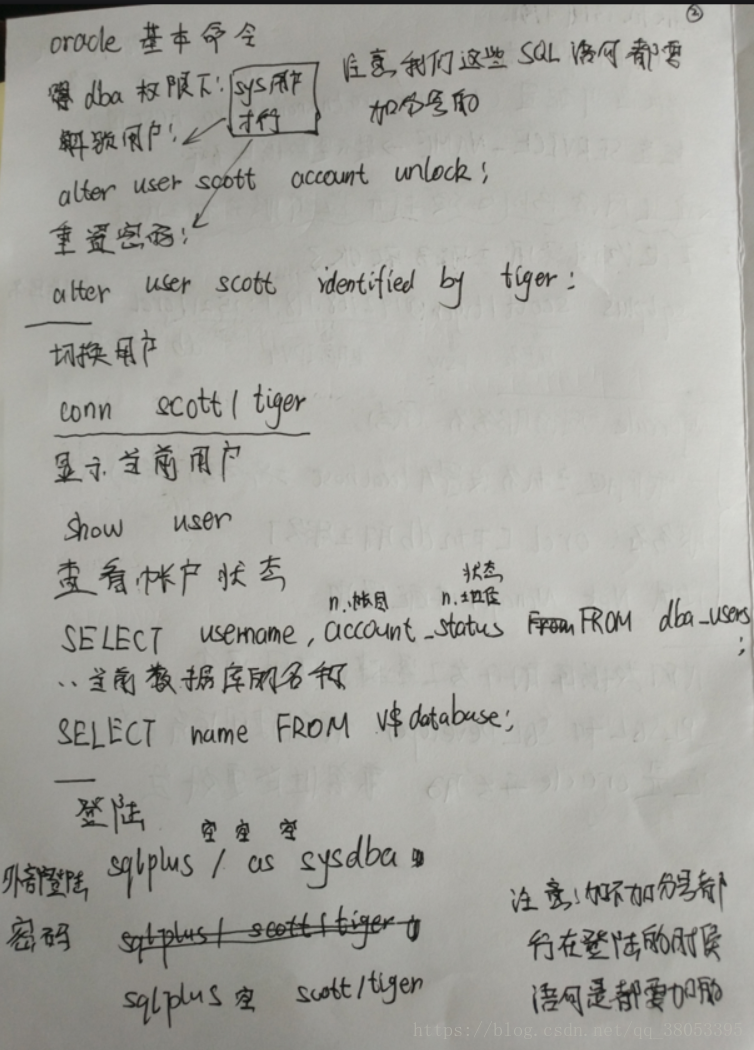 ②
oracle 基本命令
注意我们这些SQL语句都要
加分号的
dba 权限下: sys用户
才行
解锁用户:
alter user scott account unlock;
重置密码:
alter user scott identified by tiger;
切换用户
conn scott/tiger
显示当前用户
show user
查看帐户状态
n.帐目 状态 n.地位
SELECT username, account_status From FROM dba_users;
..当前数据库的名称
SELECT name FROM v$database;
登陆
空 空 空
外部登陆 sqlplus / as sysdba
密码 sqlplus / scott/tiger
sqlplus 空 scott/tiger
注意:加不加分号都
行在登陆的时候
语句是都要加的
https://blog.csdn.net/qq_38053395